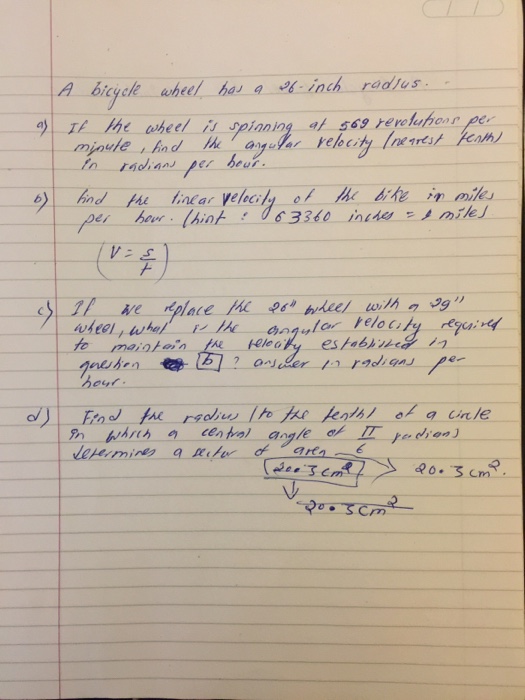 A bicycle wheel has a 26-inch radius.
a) If the wheel is spinning at 569 revolutions per
minute, find the angular velocity (nearest tenth)
in radians per hour.
b) find the linear velocity of the bike in miles
per hour. (hint : 63360 inches = 1 miles
(V = s/t)
c) If we replace the 26" wheel with a 29"
wheel, what is the angular velocity required
to maintain the velocity established in
question b ? answer in radians per
hour.
d) Find the radius (to the tenth) of a circle
in which a central angle of π/6 radians
determines a sector of area
20.3 cm² > 20.3 cm².
20.3 cm²